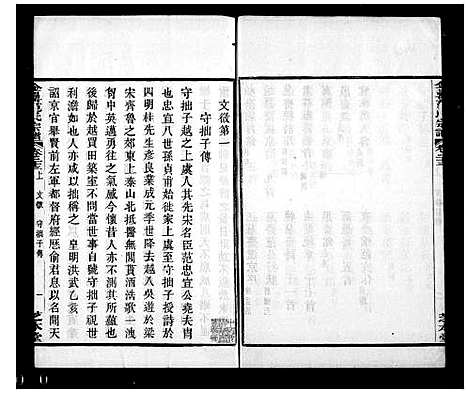 文徵第一
守拙子傳
守拙子越之上虞人其先宋名臣范忠宣公堯夫肖
也忠宣八世孫貞甫始徙家上虞至守拙子授詩於
四明桂先生彥良業成元季世降去越入吳遊於梁
宋齊魯之郊東上泰山北抵醫無閭買酒浩歌一洩
胷中英邁勇往之氣感今懷昔人亦不測其所蘊也
後歸於越買田築室不問當世事自號守拙子視世
利澹如也人亦成以拙稱之 皇明洪武乙亥
詔京官舉賢前左軍都督府經歷俞君息以名聞天
卷三上 文徵 守拙子傳 一